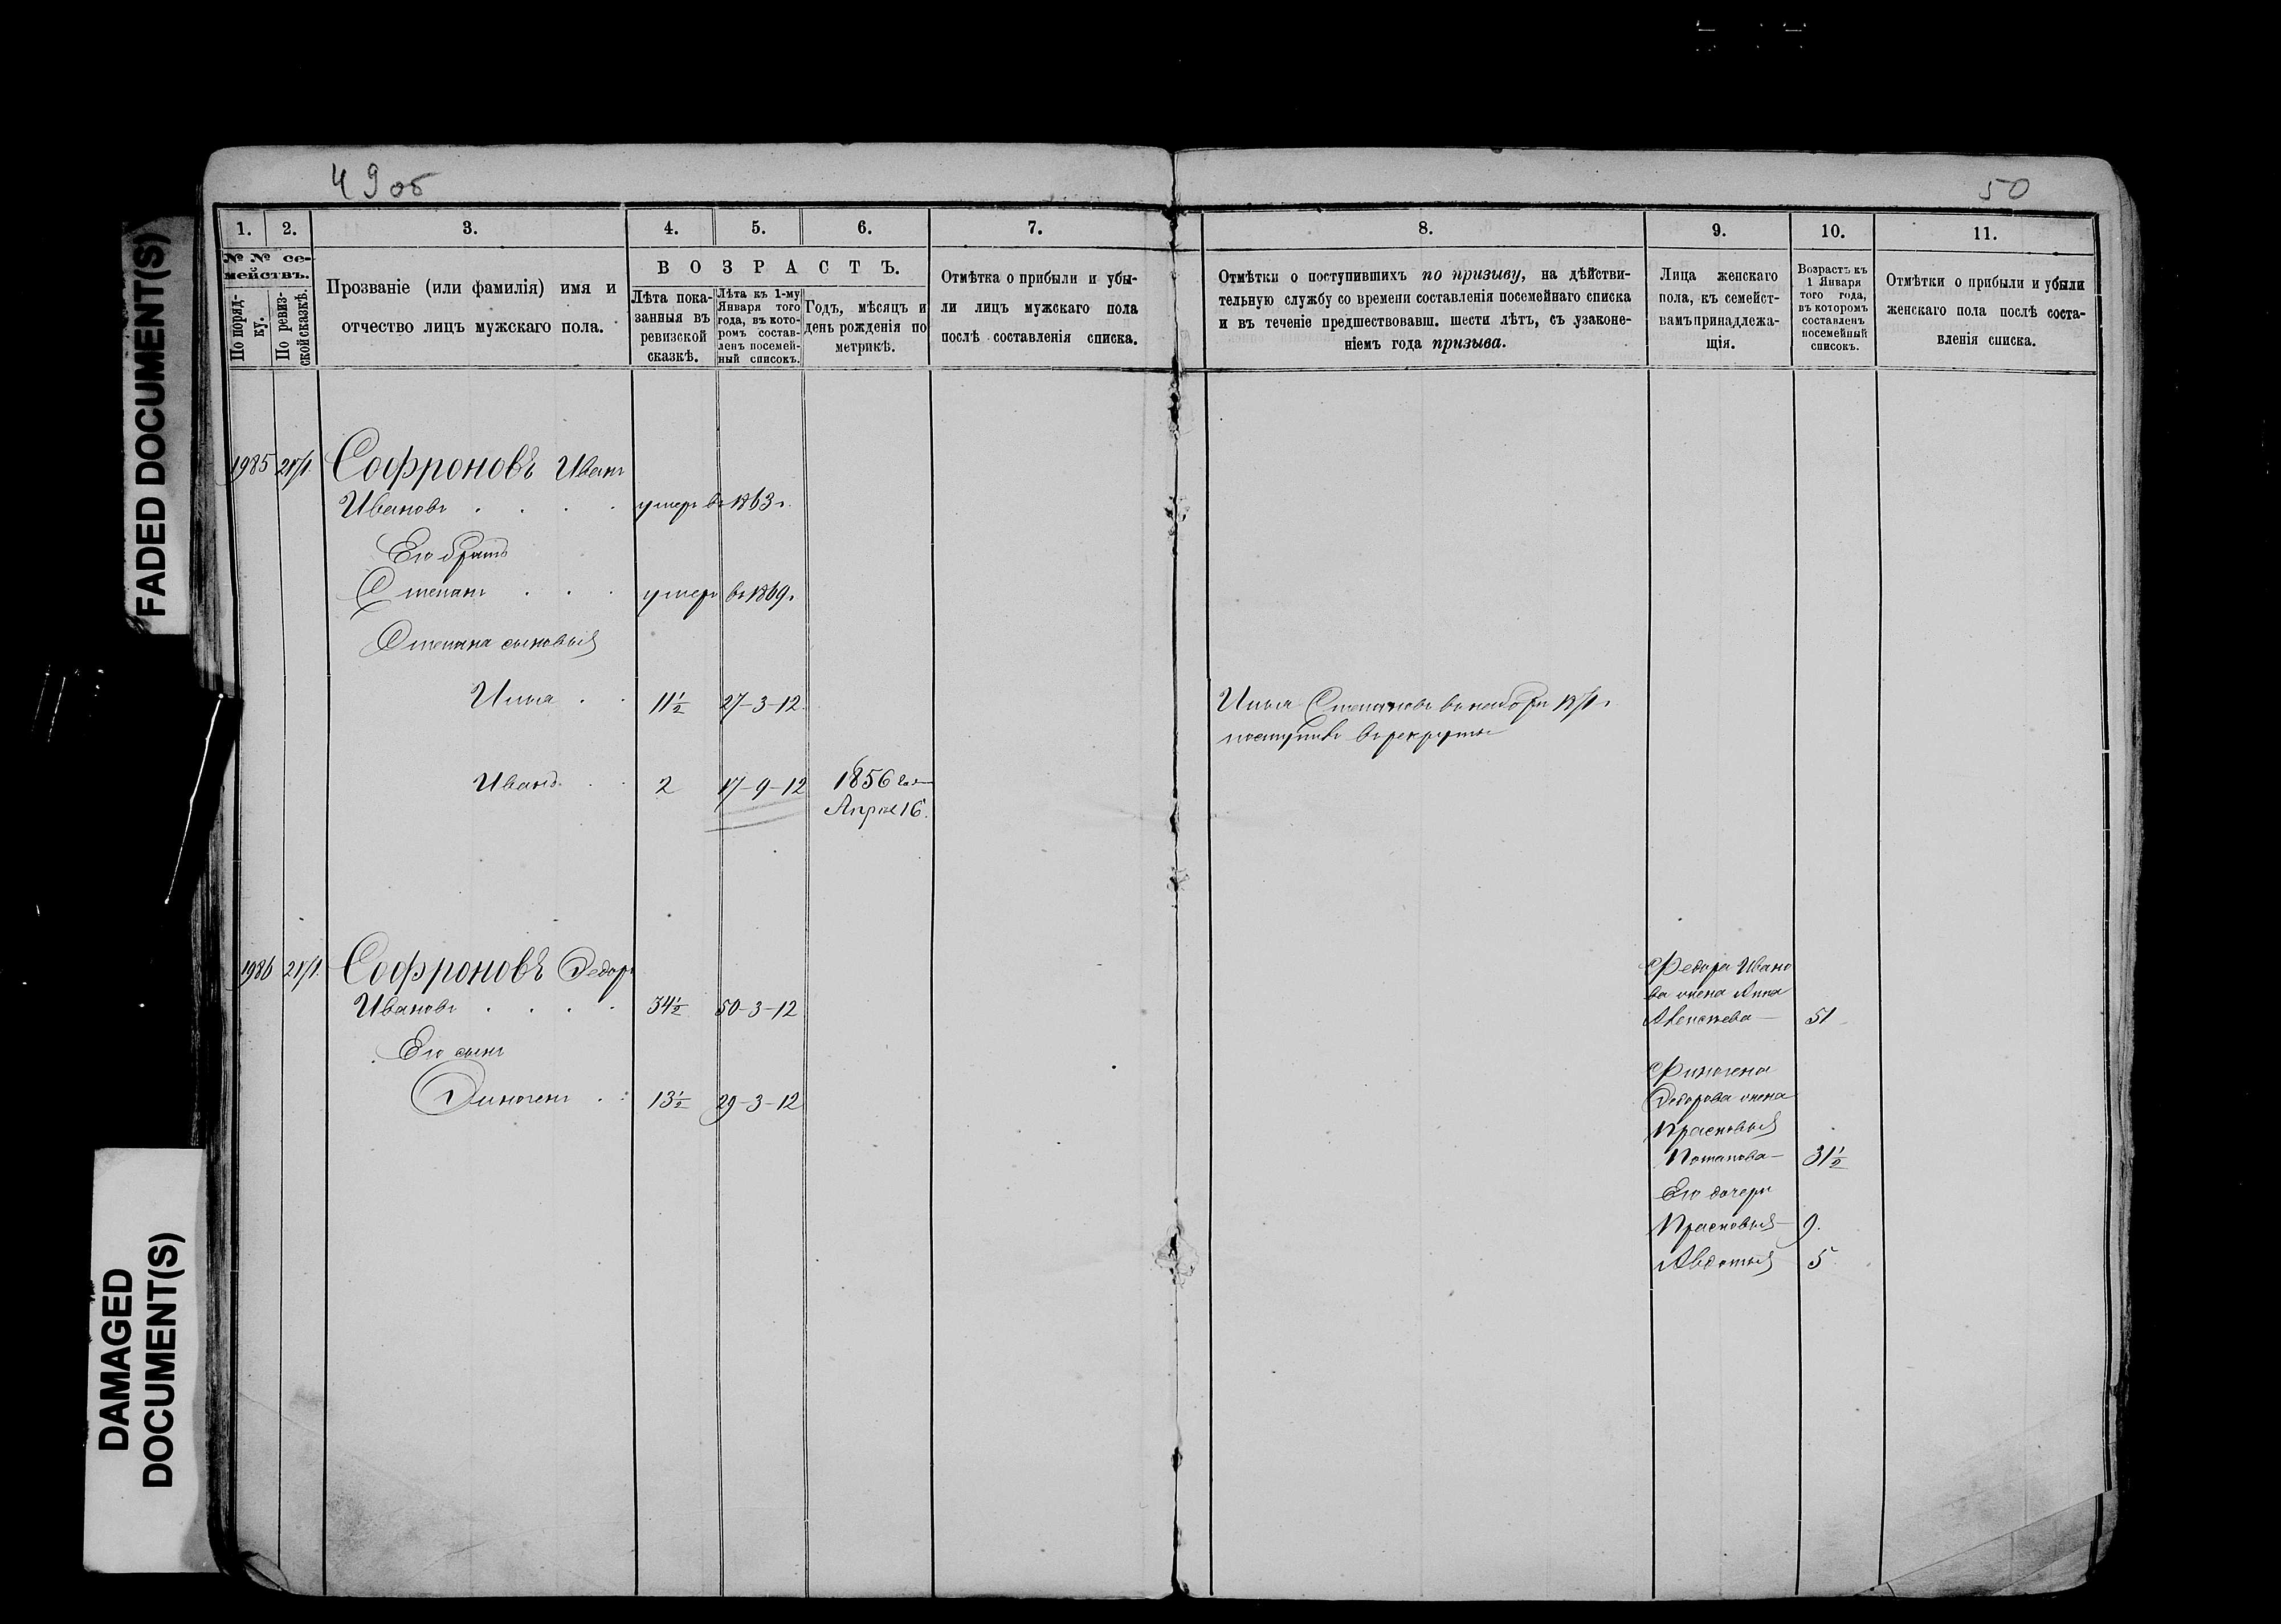 FADED DOCUMENT(S)
DAMAGED
DOCUMENT(S)
49 об
50
1. 2. 3. 4. 5. 6. 7. 8. 9. 10. 11.
№ № се-
мействъ.
По поряд-
ку.
По ревиз-
ской сказкѣ.
Прозваніе (или фамилія) имя и
отчество лицъ мужскаго пола.
ВОЗРАСТЪ.
Лѣта пока-
занныя въ
ревизской
сказкѣ.
Лѣта къ 1-му
Января того
года, въ кото-
ромъ состав-
ленъ посемей-
ный списокъ.
Годъ, мѣсяцъ и
день рожденія по
метрикѣ.
Отмѣтка о прибыли и убы-
ли лицъ мужскаго пола
послѣ составленія списка.
Отмѣтки о поступившихъ по призыву, на дѣйстви-
тельную службу со времени составленія посемейнаго списка
и въ теченіе предшествовавш. шести лѣтъ, съ узаконе-
ніемъ года призыва.
Лица женскаго
пола, къ семейст-
вамъ принадлежа-
щія.
Возрастъ къ
1 Января
того года,
въ которомъ
составленъ
посемейный
списокъ.
Отмѣтки о прибыли и убыли
женскаго пола послѣ соста-
вленія списка.
1985 Софроновъ Иванъ
Ивановъ умеръ въ 1863 г.
Его братъ
Степанъ умеръ въ 1869 г.
Степана сыновья
Илья 11½ 27-3-12
Илья Степановъ въ 1871 г.
поступилъ въ рекруты
Иванъ 2 17-9-12 1856 года
Апрѣл 16.
1986 Софроновъ Федоръ
Ивановъ 34½ 50-3-12
Его сынъ
Финогенъ 13½ 29-3-12
Федора Ивано
ва жена Анна
51
Финогена
Федорова жена
Прасковья
Потапова 31½
Его дочери
Прасковья 9.
Авдотья 5